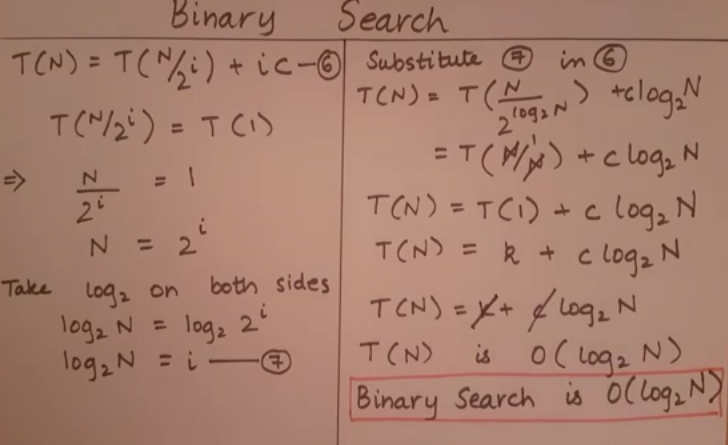 Binary Search
T(N) = T(N/2^i) + ic - ⑥
T(N/2^i) = T(1)
⇒ N/2^i = 1
N = 2^i
Take log₂ on both sides
log₂ N = log₂ 2^i
log₂ N = i — ⑦
Substitute ⑦ in ⑥
T(N) = T(N/2^(log₂ N)) + c log₂ N
= T(N/N) + c log₂ N
T(N) = T(1) + c log₂ N
T(N) = k + c log₂ N
T(N) = k + c log₂ N
T(N) is O(log₂ N)
Binary Search is O(log₂ N)